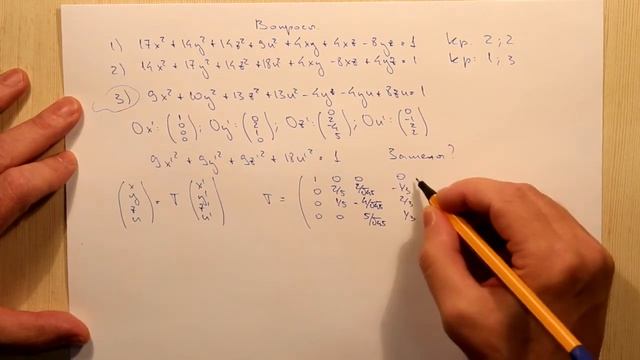 Вопросы.
1) 17x² + 14y² + 14z² + 9u² + 4xy + 4xz - 8yz = 1 кр. 2; 2
2) 14x² + 17y² + 14z² + 18u² + 4xy - 8xz + 4yz = 1 кр: 1; 3
3) 9x² + 10y² + 13z² + 13u² - 4yz - 4yu + 8zu = 1
Ox': (1 0 0 0); Oy': (0 2 1 0); Oz': (0 2 -4 5); Ou': (0 -1 2 2)
9x'² + 9y'² + 9z'² + 18u'² = 1 Замены?
(x y z u) = T (x' y' z' u') T = (
1 0 0 0
0 2/√5 2/√45 -1/3
0 1/√5 -4/√45 2/3
0 0 5/√45 2/3